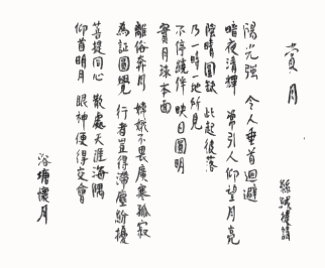 賞月
陽光強 令人垂首迴避
暗夜清輝 常引人仰望月亮
陰晴圓缺 此起彼落
乃一時一地所見
不停蹤伴 映日圓明
實月球本面
離俗奔月 嫦娥不畏廣寒孤寂
為証圓覺 行者豈得滯塵紛擾
菩提同心 散處天涯海隅
仰首明月 眼神便得交會
浴塘懷月